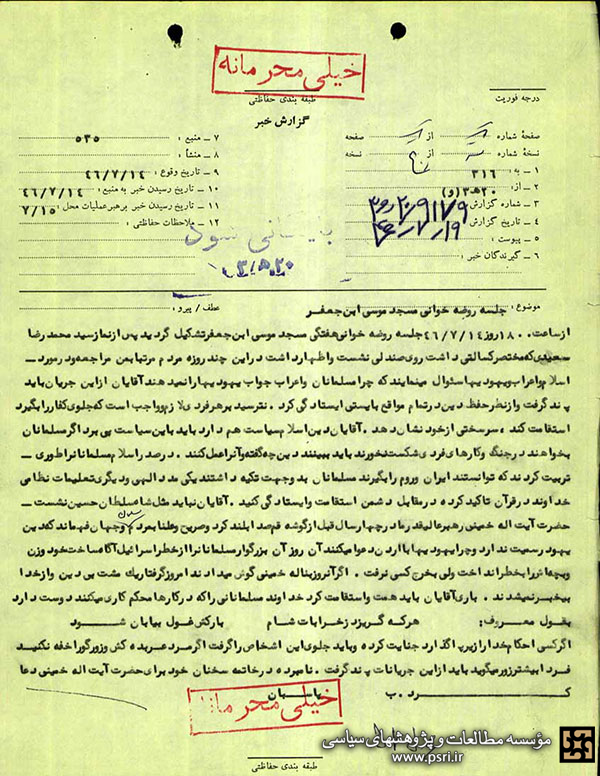 خیلی محرمانه
درجه فوریت
طبقه بندی حفاظتی
گزارش خبر
صفحه شماره از صفحه
نسخه شماره از نسخه
۱ - به : ۳۱۶
۲ - از : ۲۰ ه ۳ (و)
۳ - شماره گزارش
۴ - تاریخ گزارش
۵ - پیوست :
۶ - گیرندگان خبر :
۷ - منبع : ۵۳۵
۸ - منشأ :
۹ - تاریخ وقوع : ۴۶/۷/۱۴
۱۰ - تاریخ رسیدن خبر به منبع : ۴۶/۷/۱۴
۱۱ - تاریخ رسیدن خبر برهبر عملیات محل : ۷/۱۵
۱۲ - ملاحظات حفاظتی :
بایگانی شود
موضوع : جلسه روضه خوانی مسجد موسی ابن جعفر
عطف / پیرو :
از ساعت ۱۸۰۰ روز ۴۶/۷/۱۴ جلسه روضه خوانی هفتگی مسجد موسی ابن جعفر تشکیل گردید پس از نماز سید محمد رضا
سعیدی که مختصر کسالتی داشت روی صندلی نشست و اظهار داشت در این چند روزه مردم مرتبا بمن مراجعه و در مورد
اسلام و اعراب و یهود یها سئوال مینمایند که چرا مسلمانان و اعراب جواب یهود یها را نمید هند آقایان از این جریان باید
پند گرفت و از نظر حفظ دین در تمام مواقع بایستی ایستادگی کرد . نترسید بر هر فردی لازم و واجب است که جلوی کفار را بگیرد
استقامت کند ، سرسختی از خود نشان دهد . آقایان دین اسلام سیاست هم دارد باید با این سیاست پی برد اگر مسلمانان
بخواهند در جنگ و کارهای فردی شکست نخورند باید ببینند دین چه گفته و آنرا عمل کنند . در صدر اسلام مسلمانان را طوری
تربیت کردند که توانستند ایران و روم را بگیرند مسلمانان بد و جهت تکیه داشتند یکی مدد الهی و دیگری تعلیمات نظامی
خداوند در قرآن تاکید کرده در مقابل دشمن استقامت و ایستادگی کنید . آقایان نباید مثل شاه سلطان حسین نشست
حضرت آیت اله خمینی رهبر عالیقدر ما در چهار سال قبل از گوشه قم صدا بلند کرد و صریح و علنا بمردم و جهان فهماند که دین
یهود رسمیت ندارد و چرا یهود یها با اردن دعوا میکنند آن روز آن بزرگوار مسلمانان را از خطر اسرائیل آگاه ساخت خود و زن
و بچه اش را بخطر انداخت ولی بخرج کسی نرفت . اگر آنروز بناله خمینی گوش میدادند امروز گرفتار یک مشت بی دین و از خدا
بیخبر نمیشدند . باری آقایان باید همت و استقامت کرد خداوند مسلمانانی را که در کارها محکم کاری میکنند دوست دارد
بقول معروف : هر که گریزد ز خرابات شام بارکش غول بیابان شود
اگر کسی احکام خدا را زیر پا گذارد جنایت کرده و باید جلوی این اشخاص را گرفت اگر مرد عربده کش و زورگو را خفه نکنید
فردا بیشتر زور میگوید باید از این جریانات پند گرفت . نامبرده در خاتمه سخنان خود برای حضرت آیت اله خمینی دعا
کرد . ب
خیلی محرمانه
طبقه بندی حفاظتی
مؤسسه مطالعات و پژوهشهای سیاسی
www.psri.ir